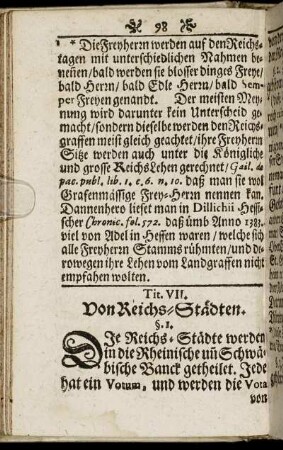 98
* Die Freyherrn werden auf den Reichs-
tagen mit unterschiedlichen Nahmen be-
nennen/bald werden sie blosser dinges Freye/
bald Herrn/ bald Edle Herrn/ bald Sem-
per Freyen genandt. Der meisten Mey-
nung wird darunter kein Unterscheid ge-
macht/sondern dieselbe werden den Reichs-
graffen meist gleich geachtet/ihre Freyherrn
Sitze werden auch unter die Königliche
und grosse Reichs Lehen gerechnet/ Gail. de
pac. publ. lib. 1. c. 6. n. 10. daß man sie wol
Grafenmässige Frey-Herrn nennen kan.
Dannenhero lieset man in Dillichii Hessi-
scher Chronic. fol. 572. daß umb Anno 1383.
viel von Adel in Hessen waren/ welche sich
alle Freyherrn Stamms rühmten/und de-
rowegen ihre Lehen vom Landgraffen nicht
empfahen wolten.
Tit. VII.
Von Reichs-Städten.
§. 1.
DIe Reichs-Städte werden
in die Rheinische uñ Schwä-
bische Banck getheilet. Jede
hat ein Votum, und werden die Vota
von